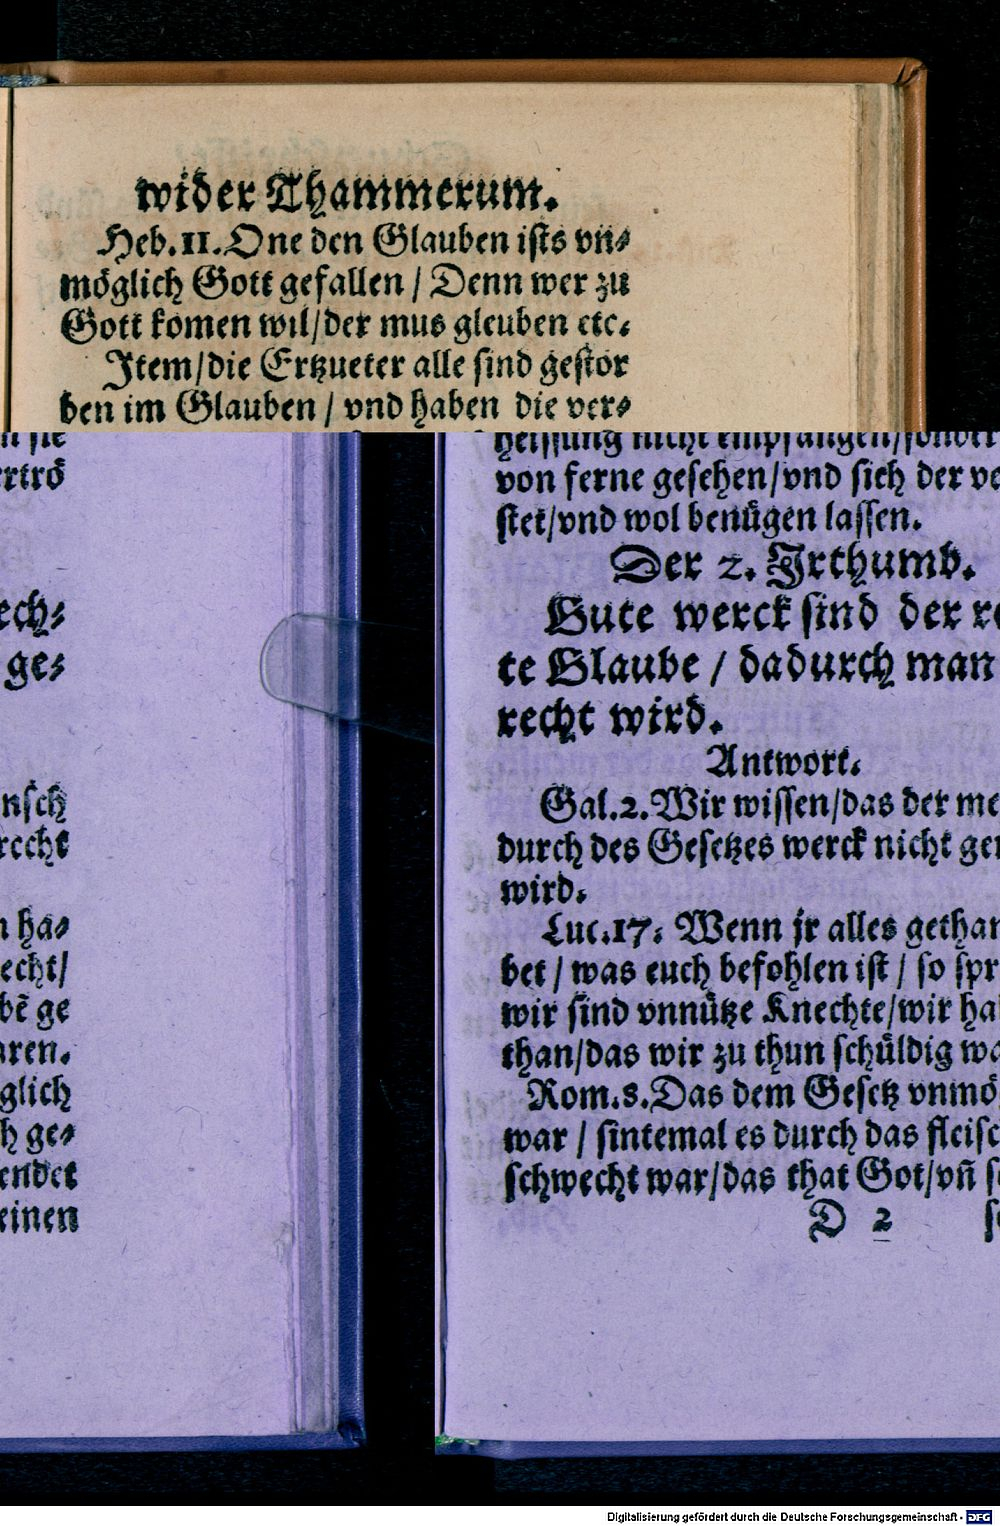 wider Thammerum.
Heb.11.One den Glauben ists vn=
möglich Gott gefallen / Denn wer zu
Gott komen wil/der mus gleuben etc.
Item/die Ertzueter alle sind gestor
ben im Glauben / vnd haben die ver=
heissung nicht empfangen/sondern sie
von ferne gesehen/vnd sich der vertrö
stet/vnd wol benügen lassen.
Der 2. Irthumb.
Gute werck sind der rech=
te Glaube / dadurch man ge=
recht wird.
Antwort.
Gal.2.Wir wissen/das der mensch
durch des Gesetzes werck nicht gerecht
wird.
Luc.17: Wenn jr alles gethan ha=
bet / was euch befohlen ist / so sprecht/
wir sind vnnütze Knechte/wir habẽ ge
than/das wir zu thun schüldig waren.
Rom.8.Das dem Gesetz vnmöglich
war / sintemal es durch das fleisch ge=
schwecht war/das that Got/vñ sendet
D 2 seinen
Digitalisierung gefördert durch die Deutsche Forschungsgemeinschaft - DFG